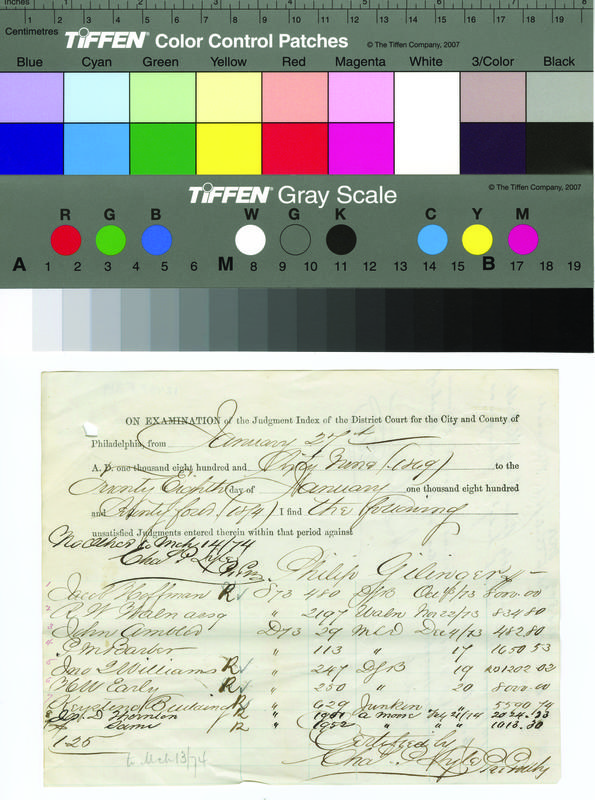 Inches 1 2 3 4 5 6 7 8
Centimetres 1 2 3 4 5 6 7 8 9 10 11 12 13 14 15 16 17 18 19
TIFFEN® Color Control Patches © The Tiffen Company, 2007
Blue Cyan Green Yellow Red Magenta White 3/Color Black
TIFFEN® Gray Scale © The Tiffen Company, 2007
R G B W G K C Y M
A 1 2 3 4 5 6 M 8 9 10 11 12 13 14 15 B 17 18 19
ON EXAMINATION of the Judgment Index of the District Court for the City and County of
Philadelphia, from January 27th
A. D. one thousand eight hundred and Sixty Nine (1869) to the
Twenty Eighth day of January one thousand eight hundred
and Seventy four (1874) I find the following
unsatisfied Judgments entered therein within that period against
No other to Mch 14/74
Chas. P.
Philip Gilinger
1 Jacob Hoffman R D73 480 DSB Oct 8000.00
2 R W Waln assg " 2197 Waln Nov 22/73 834 80
3 John D73 29 MLD Dec 4/73 482 80
4 E M " 113 " 17 1650 53
5 Jno Williams R " 247 DSB 19 201202 02
6 H W Early R " 250 " 20 8000.00
7 Keystone Building R " 629 Junkin " 5590 74
8 Jos. D Thornton R " 1951 a mone Feb 21/74 2024.33
Same R " 1952 " " " 1013.80
1.25
Certified by
Chas. P.
to Mch 13/74